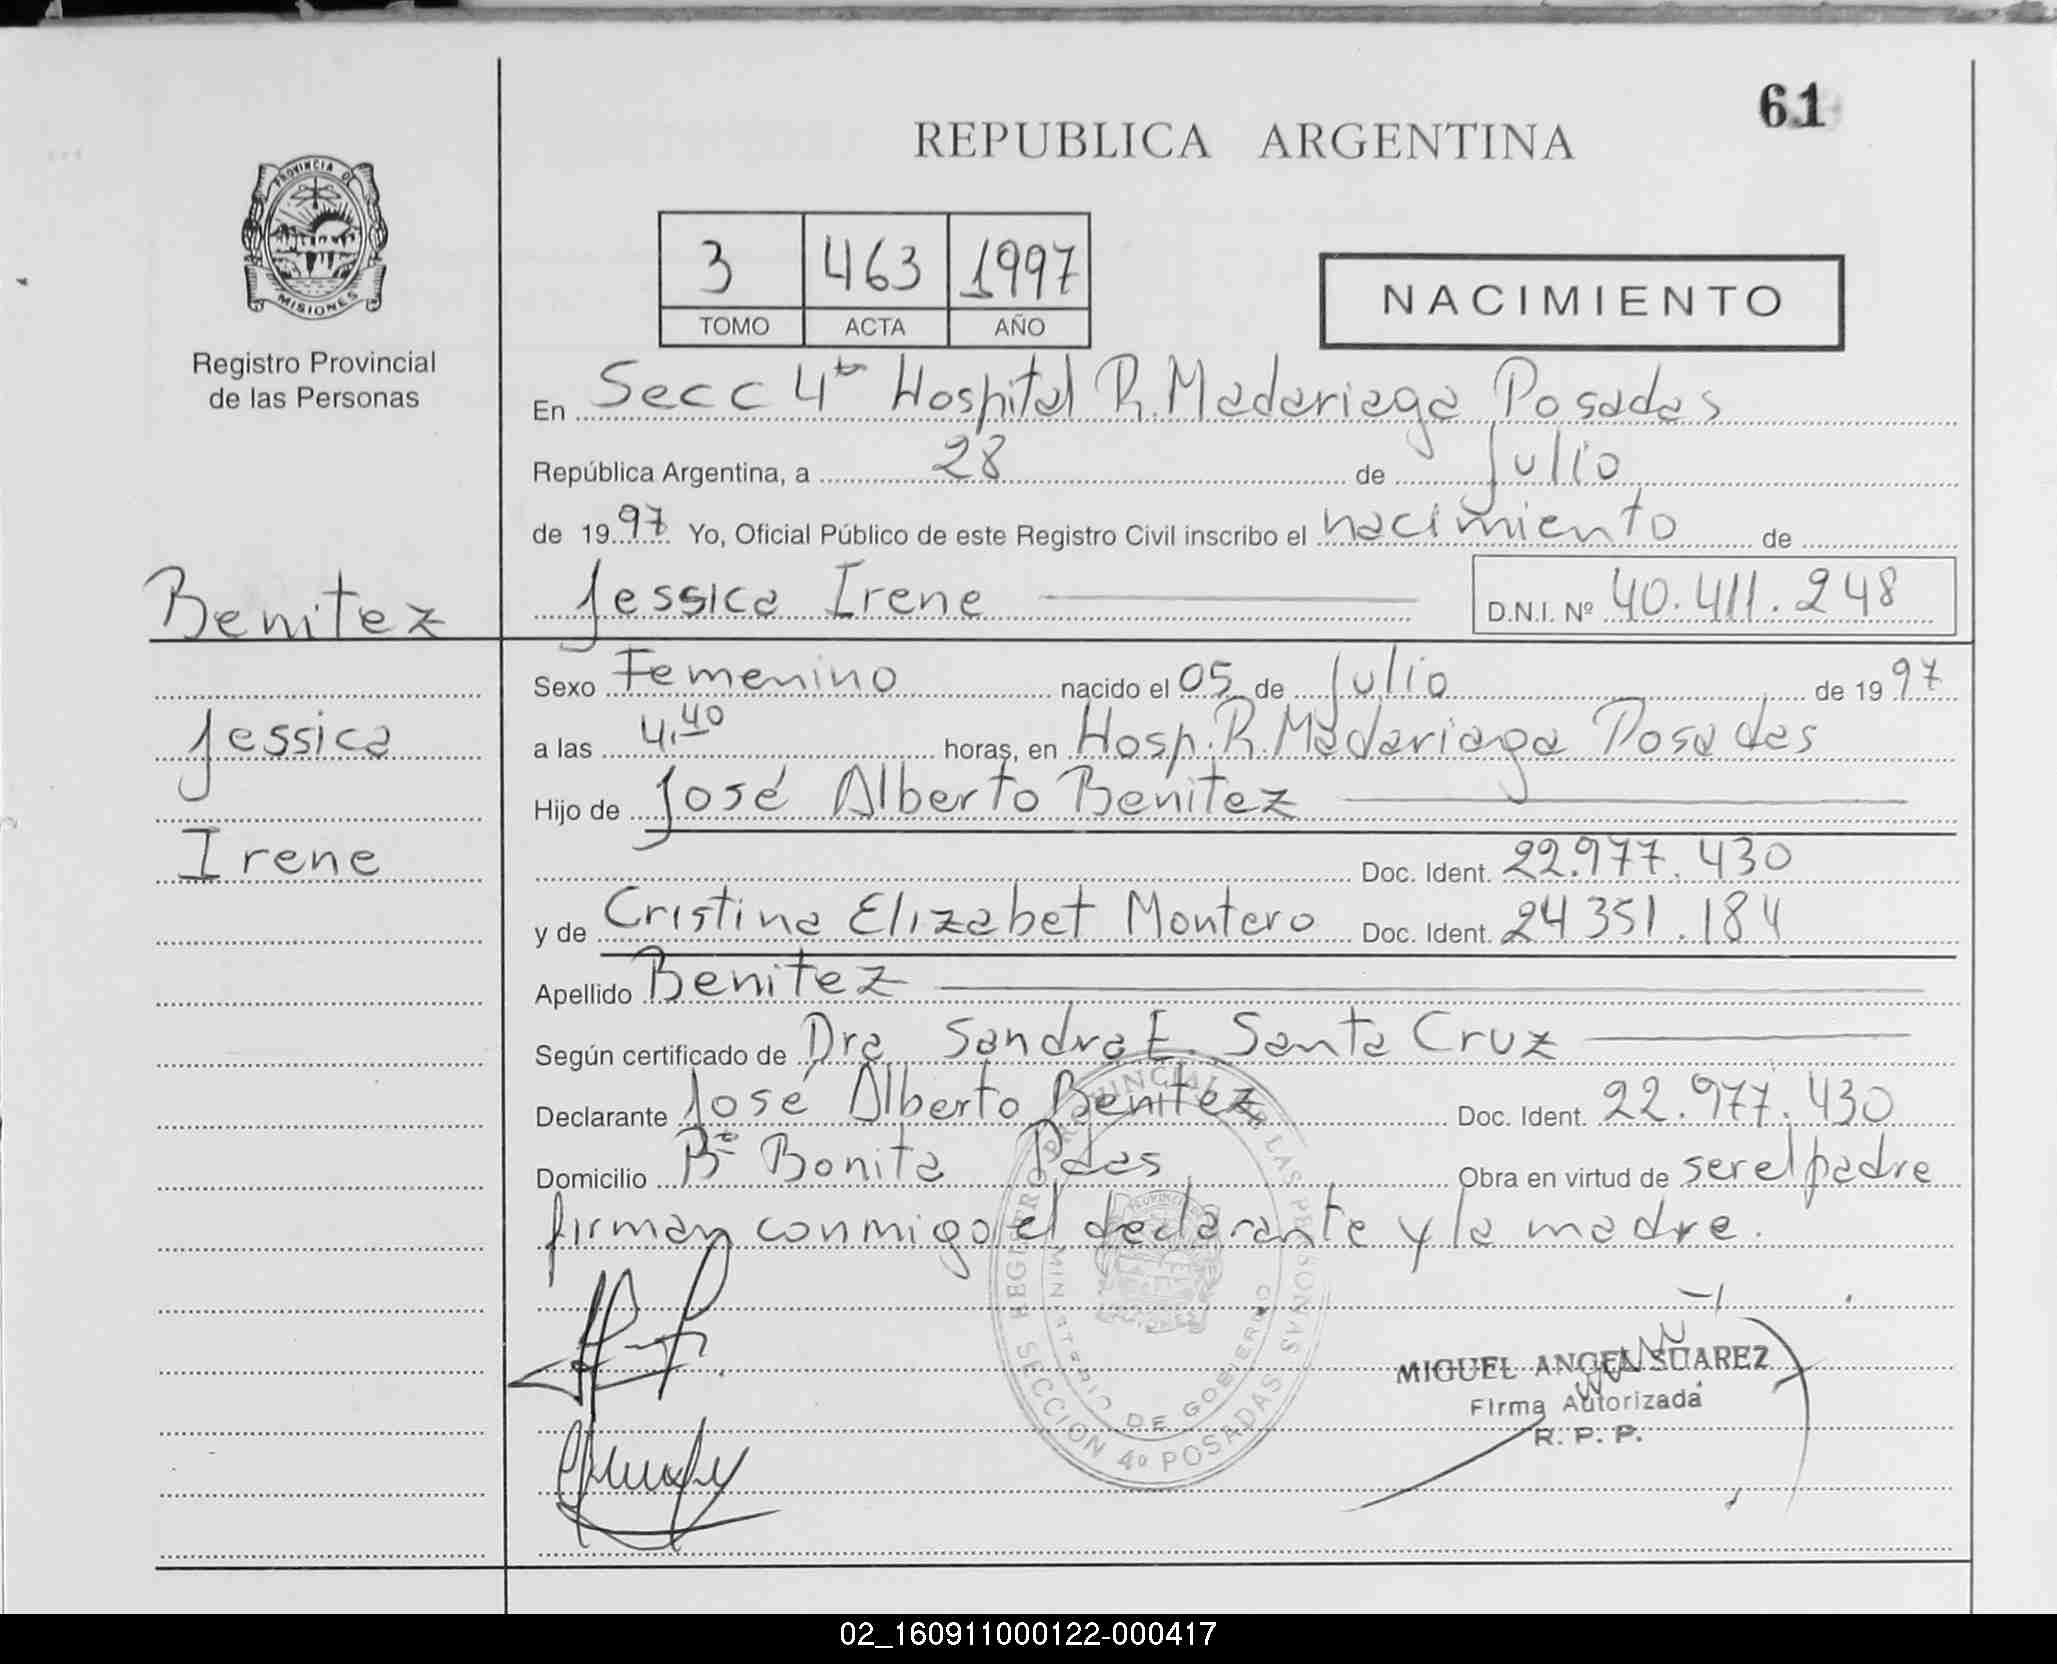 61
REPUBLICA ARGENTINA
PROVINCIA DE
MISIONES
3 463 1997
TOMO ACTA AÑO
NACIMIENTO
Registro Provincial
de las Personas
En Secc 4ta Hospital R. Madariaga Posadas
República Argentina, a 28 de Julio
de 1997 Yo, Oficial Público de este Registro Civil inscribo el nacimiento de
Benitez
Jessica Irene D.N.I. Nº 40.411.248
Sexo Femenino nacido el 05 de Julio de 1997
Jessica
a las 4,40 horas, en Hosp. R. Madariaga Posadas
Hijo de José Alberto Benitez
Irene
Doc. Ident. 22.977.430
y de Cristina Elizabet Montero Doc. Ident. 24 351.184
Apellido Benitez
Según certificado de Dra Sandra E. Santa Cruz
Declarante José Alberto Benitez Doc. Ident. 22.977.430
Domicilio Bº Bonita Pdas Obra en virtud de ser el padre
firman conmigo el declarante y la madre.
REGISTRO PROVINCIAL DE LAS PERSONAS
MINISTERIO DE GOBIERNO
SECCION 4º POSADAS
MIGUEL ANGEL SUAREZ
Firma Autorizada
R. P. P.
02_160911000122-000417